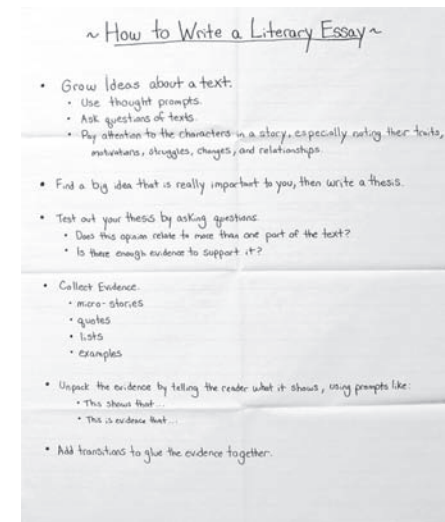 ~ How to Write a Literary Essay ~
• Grow Ideas about a text.
• Use thought prompts.
• Ask questions of texts.
• Pay attention to the characters in a story, especially noting their traits,
motivations, struggles, changes, and relationships.
• Find a big idea that is really important to you, then write a thesis.
• Test out your thesis by asking questions.
• Does this opinion relate to more than one part of the text?
• Is there enough evidence to support it?
• Collect Evidence.
• micro-stories
• quotes
• lists
• examples
• Unpack the evidence by telling the reader what it shows, using prompts like:
• This shows that...
• This is evidence that...
• Add transitions to glue the evidence together.